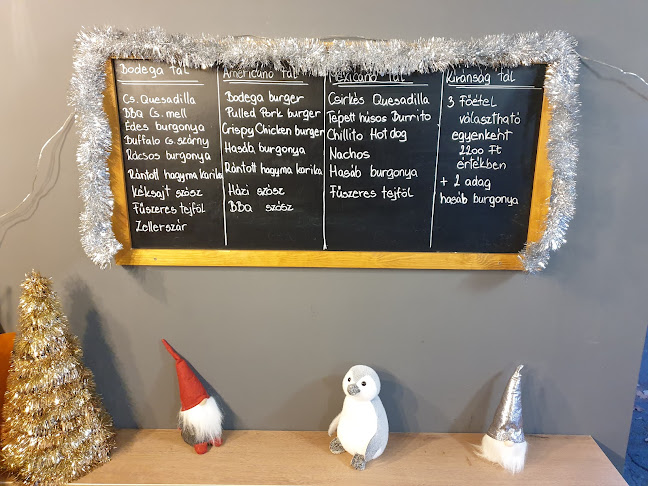 Bodega tál
Cs. Quesadilla
BBQ Cs. mell
Édes burgonya
Buffalo cs. szárny
Rácsos burgonya
Rántott hagyma karika
Kéksajt szósz
Fűszeres tejföl
Zellerszár
Americano tál
Bodega burger
Pulled Pork burger
Crispy Chicken burger
Hasáb burgonya
Rántott hagyma karika
Házi szósz
BBQ szósz
Mexicano tál
Csirkés Quesadilla
Tépett húsos Burrito
Chillito Hot dog
Nachos
Hasáb burgonya
Fűszeres tejföl
Kívánság tál
3 Főétel
választható
egyenként
2200 Ft
értékben
+ 2 adag
hasáb burgonya